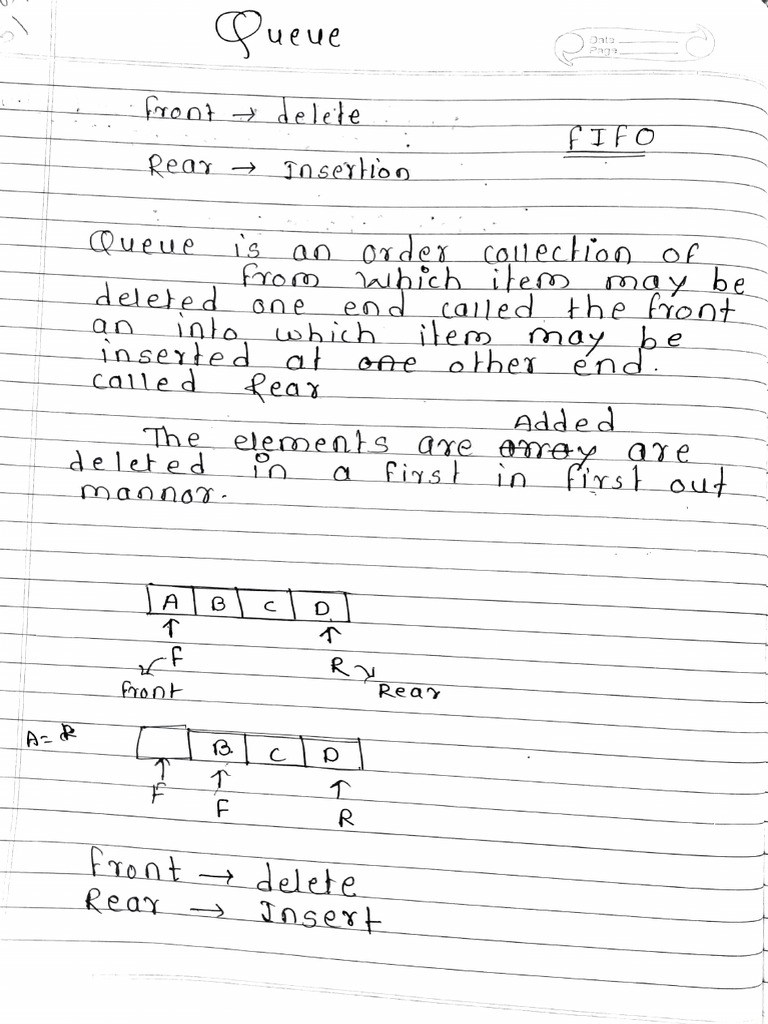 Queue
Data
Page
front → delete
FIFO
Rear → Insertion
Queue is an order collection of
from which item may be
deleted one end called the front
an into which item may be
inserted at one other end.
called Rear
Added
The elements are array are
deleted in a first in first out
mannor.
A B C D
↑ ↑
F R
front Rear
A=
B C D
↑ ↑ ↑
F F R
front → delete
Rear → Insert